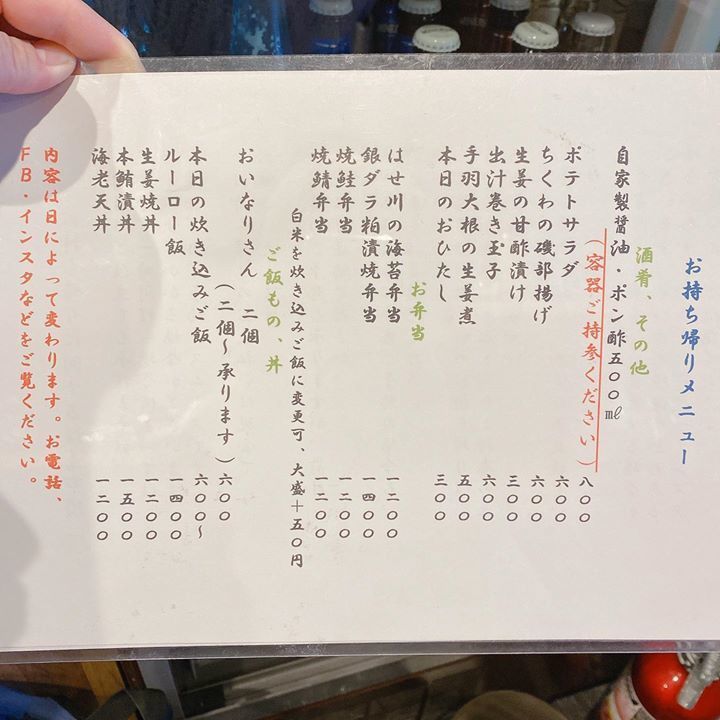 お持ち帰りメニュー
酒肴、その他
自家製醤油・ポン酢五〇〇㎖
(容器ご持参ください) 八〇〇
ポテトサラダ 六〇〇
ちくわの磯部揚げ 六〇〇
生姜の甘酢漬け 三〇〇
出汁巻き玉子 六〇〇
手羽大根の生姜煮 五〇〇
本日のおひたし 三〇〇
お弁当
はせ川の海苔弁当 一二〇〇
銀ダラ粕漬焼弁当 一四〇〇
焼鮭弁当 一二〇〇
焼鯖弁当 一二〇〇
白米を炊き込みご飯に変更可、大盛+五〇円
ご飯もの、丼
おいなりさん 二個
(二個〜承ります) 六〇〇
本日の炊き込みご飯 六〇〇〜
ルーロー飯 一四〇〇
生姜焼丼 一二〇〇
本鮪漬丼 一五〇〇
海老天丼 一二〇〇
内容は日によって変わります。お電話、
FB・インスタなどをご覧ください。